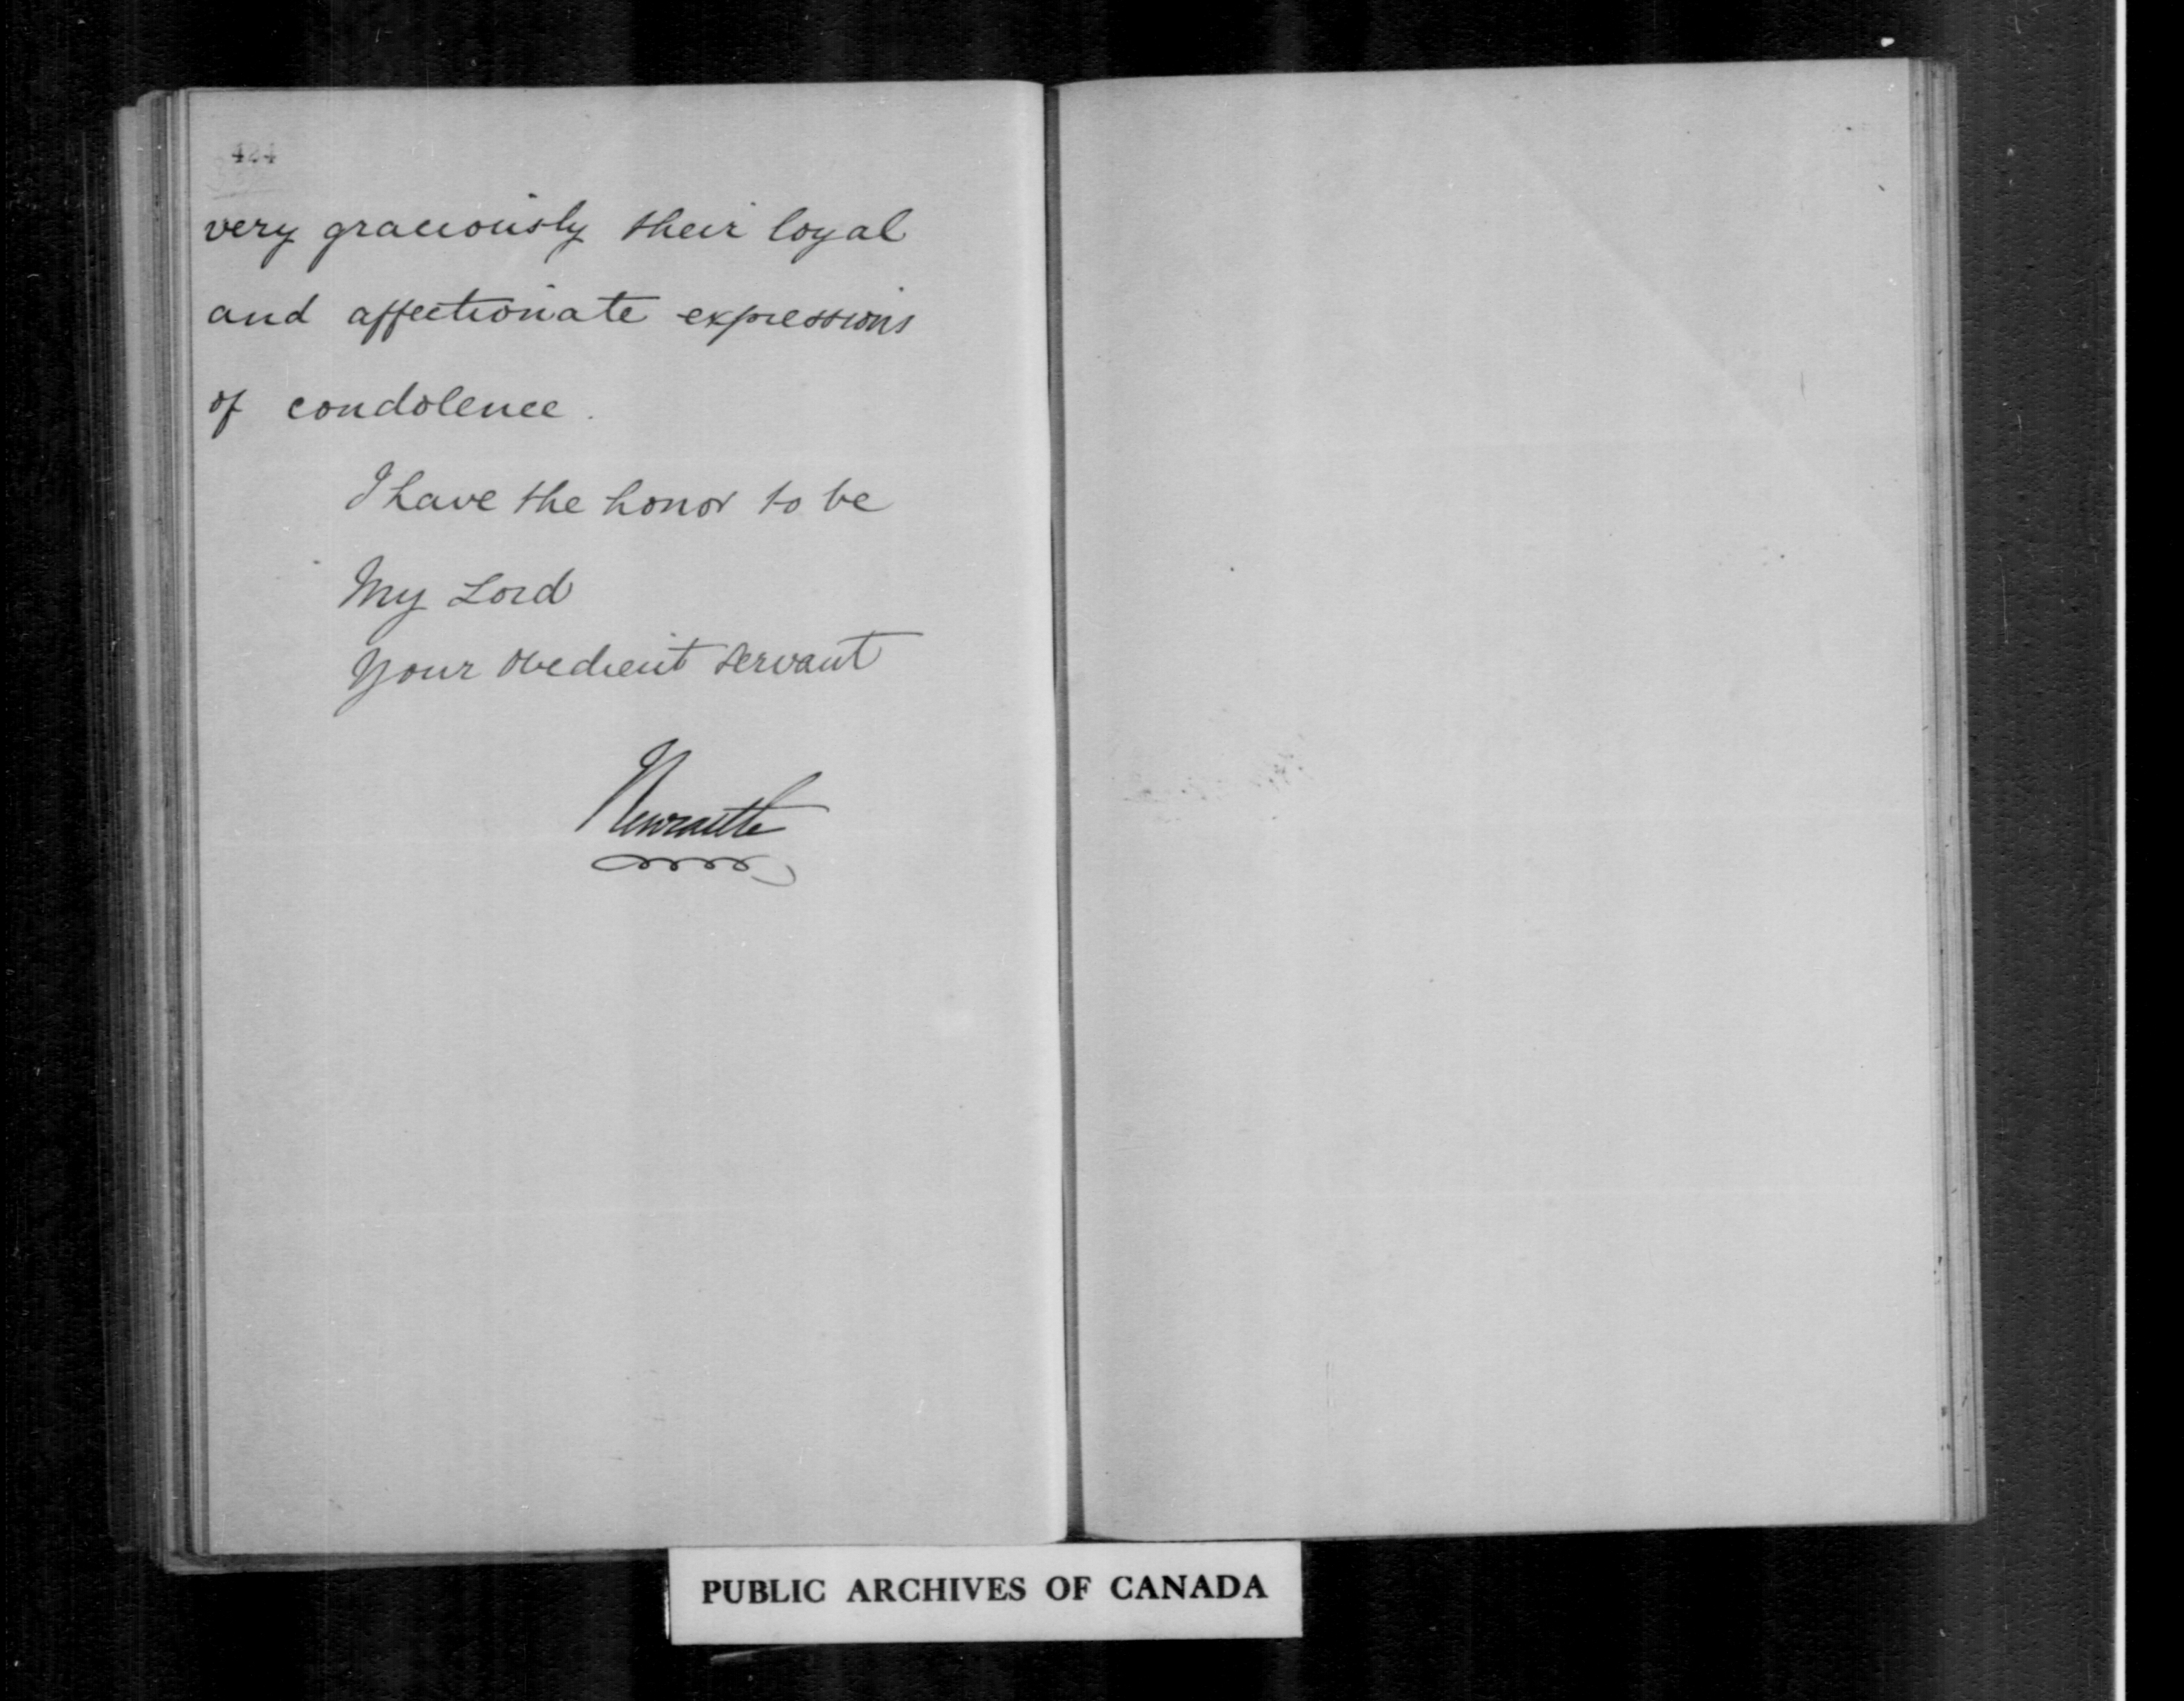 424
very graciously their loyal
and affectionate expressions
of condolence.
I have the honor to be
My Lord
Your obedient servant
Newcastle
PUBLIC ARCHIVES OF CANADA